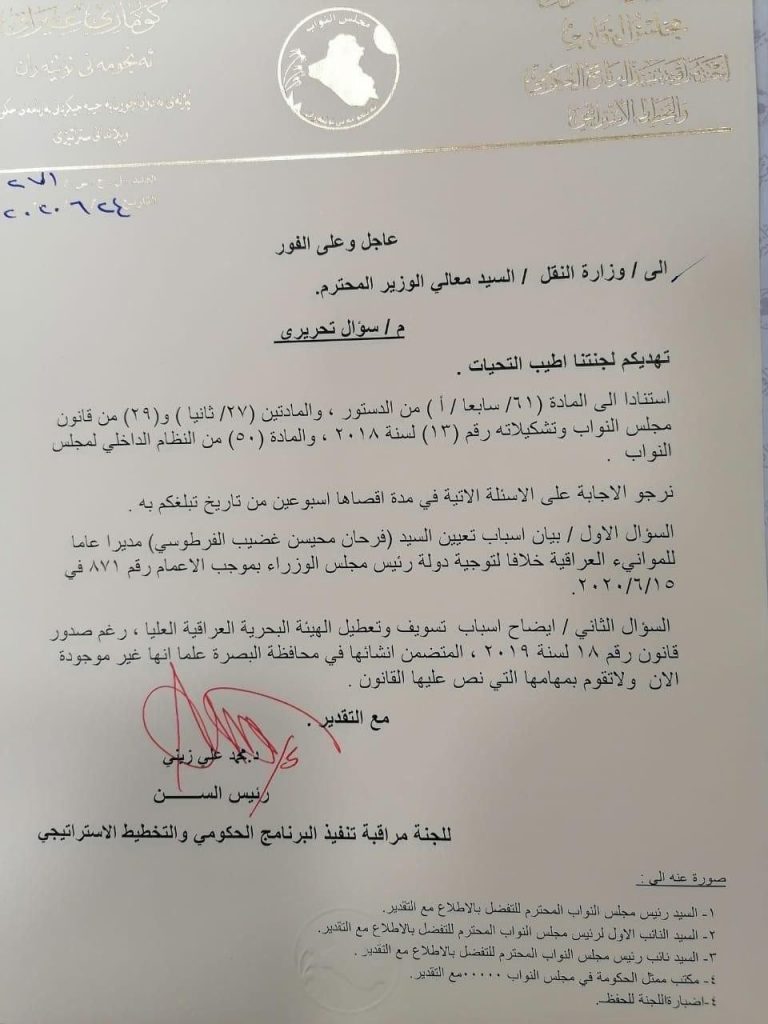 مجلس النواب
لجنة مراقبة تنفيذ البرنامج الحكومي
والتخطيط الاستراتيجي
كۆماری عێراق
ئەنجومەنی نوێنەران
مجلس النواب
العدد: ل ج ص / ٢٧١
التاريخ: ٢٤ / ٦ / ٢٠٢٠
عاجل وعلى الفور
الى / وزارة النقل / السيد معالي الوزير المحترم.
م / سؤال تحريري
تهديكم لجنتنا اطيب التحيات .
استنادا الى المادة (٦١/ سابعا / أ ) من الدستور ، والمادتين (٢٧/ ثانيا ) و(٢٩) من قانون
مجلس النواب وتشكيلاته رقم (١٣) لسنة ٢٠١٨ ، والمادة (٥٠) من النظام الداخلي لمجلس
النواب .
نرجو الاجابة على الاسئلة الاتية في مدة اقصاها اسبوعين من تاريخ تبلغكم به .
السؤال الاول / بيان اسباب تعيين السيد (فرحان محيسن غضيب الفرطوسي) مديرا عاما
للموانيء العراقية خلافا لتوجية دولة رئيس مجلس الوزراء بموجب الاعمام رقم ٨٧١ في
٢٠٢٠/٦/١٥.
السؤال الثاني / ايضاح اسباب تسويف وتعطيل الهيئة البحرية العراقية العليا ، رغم صدور
قانون رقم ١٨ لسنة ٢٠١٩ ، المتضمن انشائها في محافظة البصرة علما انها غير موجودة
الان ولاتقوم بمهامها التي نص عليها القانون .
مع التقدير .
د.محمد علي زيني
رئيس الســـــن
للجنة مراقبة تنفيذ البرنامج الحكومي والتخطيط الاستراتيجي
صورة عنه الى :
١- السيد رئيس مجلس النواب المحترم للتفضل بالاطلاع مع التقدير.
٢- السيد النائب الاول لرئيس مجلس النواب المحترم للتفضل بالاطلاع مع التقدير.
٣- السيد نائب رئيس مجلس النواب المحترم للتفضل بالاطلاع مع التقدير .
٤- مكتب ممثل الحكومة في مجلس النواب ٠٠٠٠٠مع التقدير.
٤-اضبارةاللجنة للحفظ.